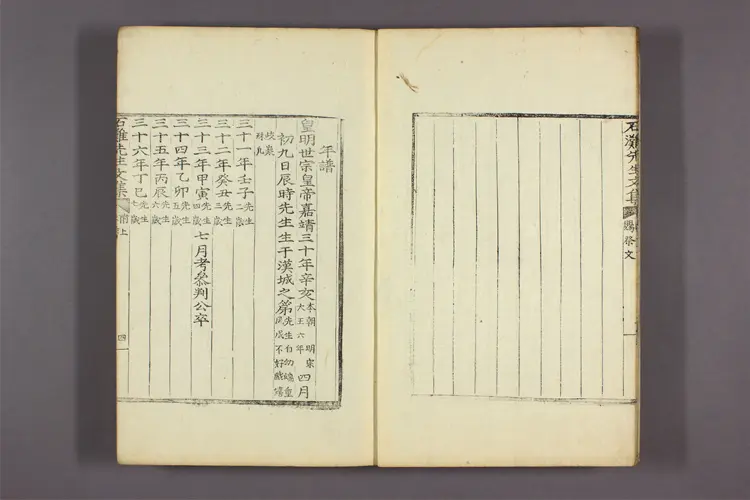 石灘先生文集 賜祭文
年譜
皇明世宗皇帝嘉靖三十年辛亥本朝 明宗大王六年四月
初九日辰時先生生于漢城之第先生自幼夙成不好戲嬉
三十一年壬子先生二歲
三十二年癸丑先生三歲
三十三年甲寅先生四歲 七月考叅判公卒
三十四年乙卯先生五歲
三十五年丙辰先生六歲
三十六年丁巳先生七歲
石灘先生文集 附上 四